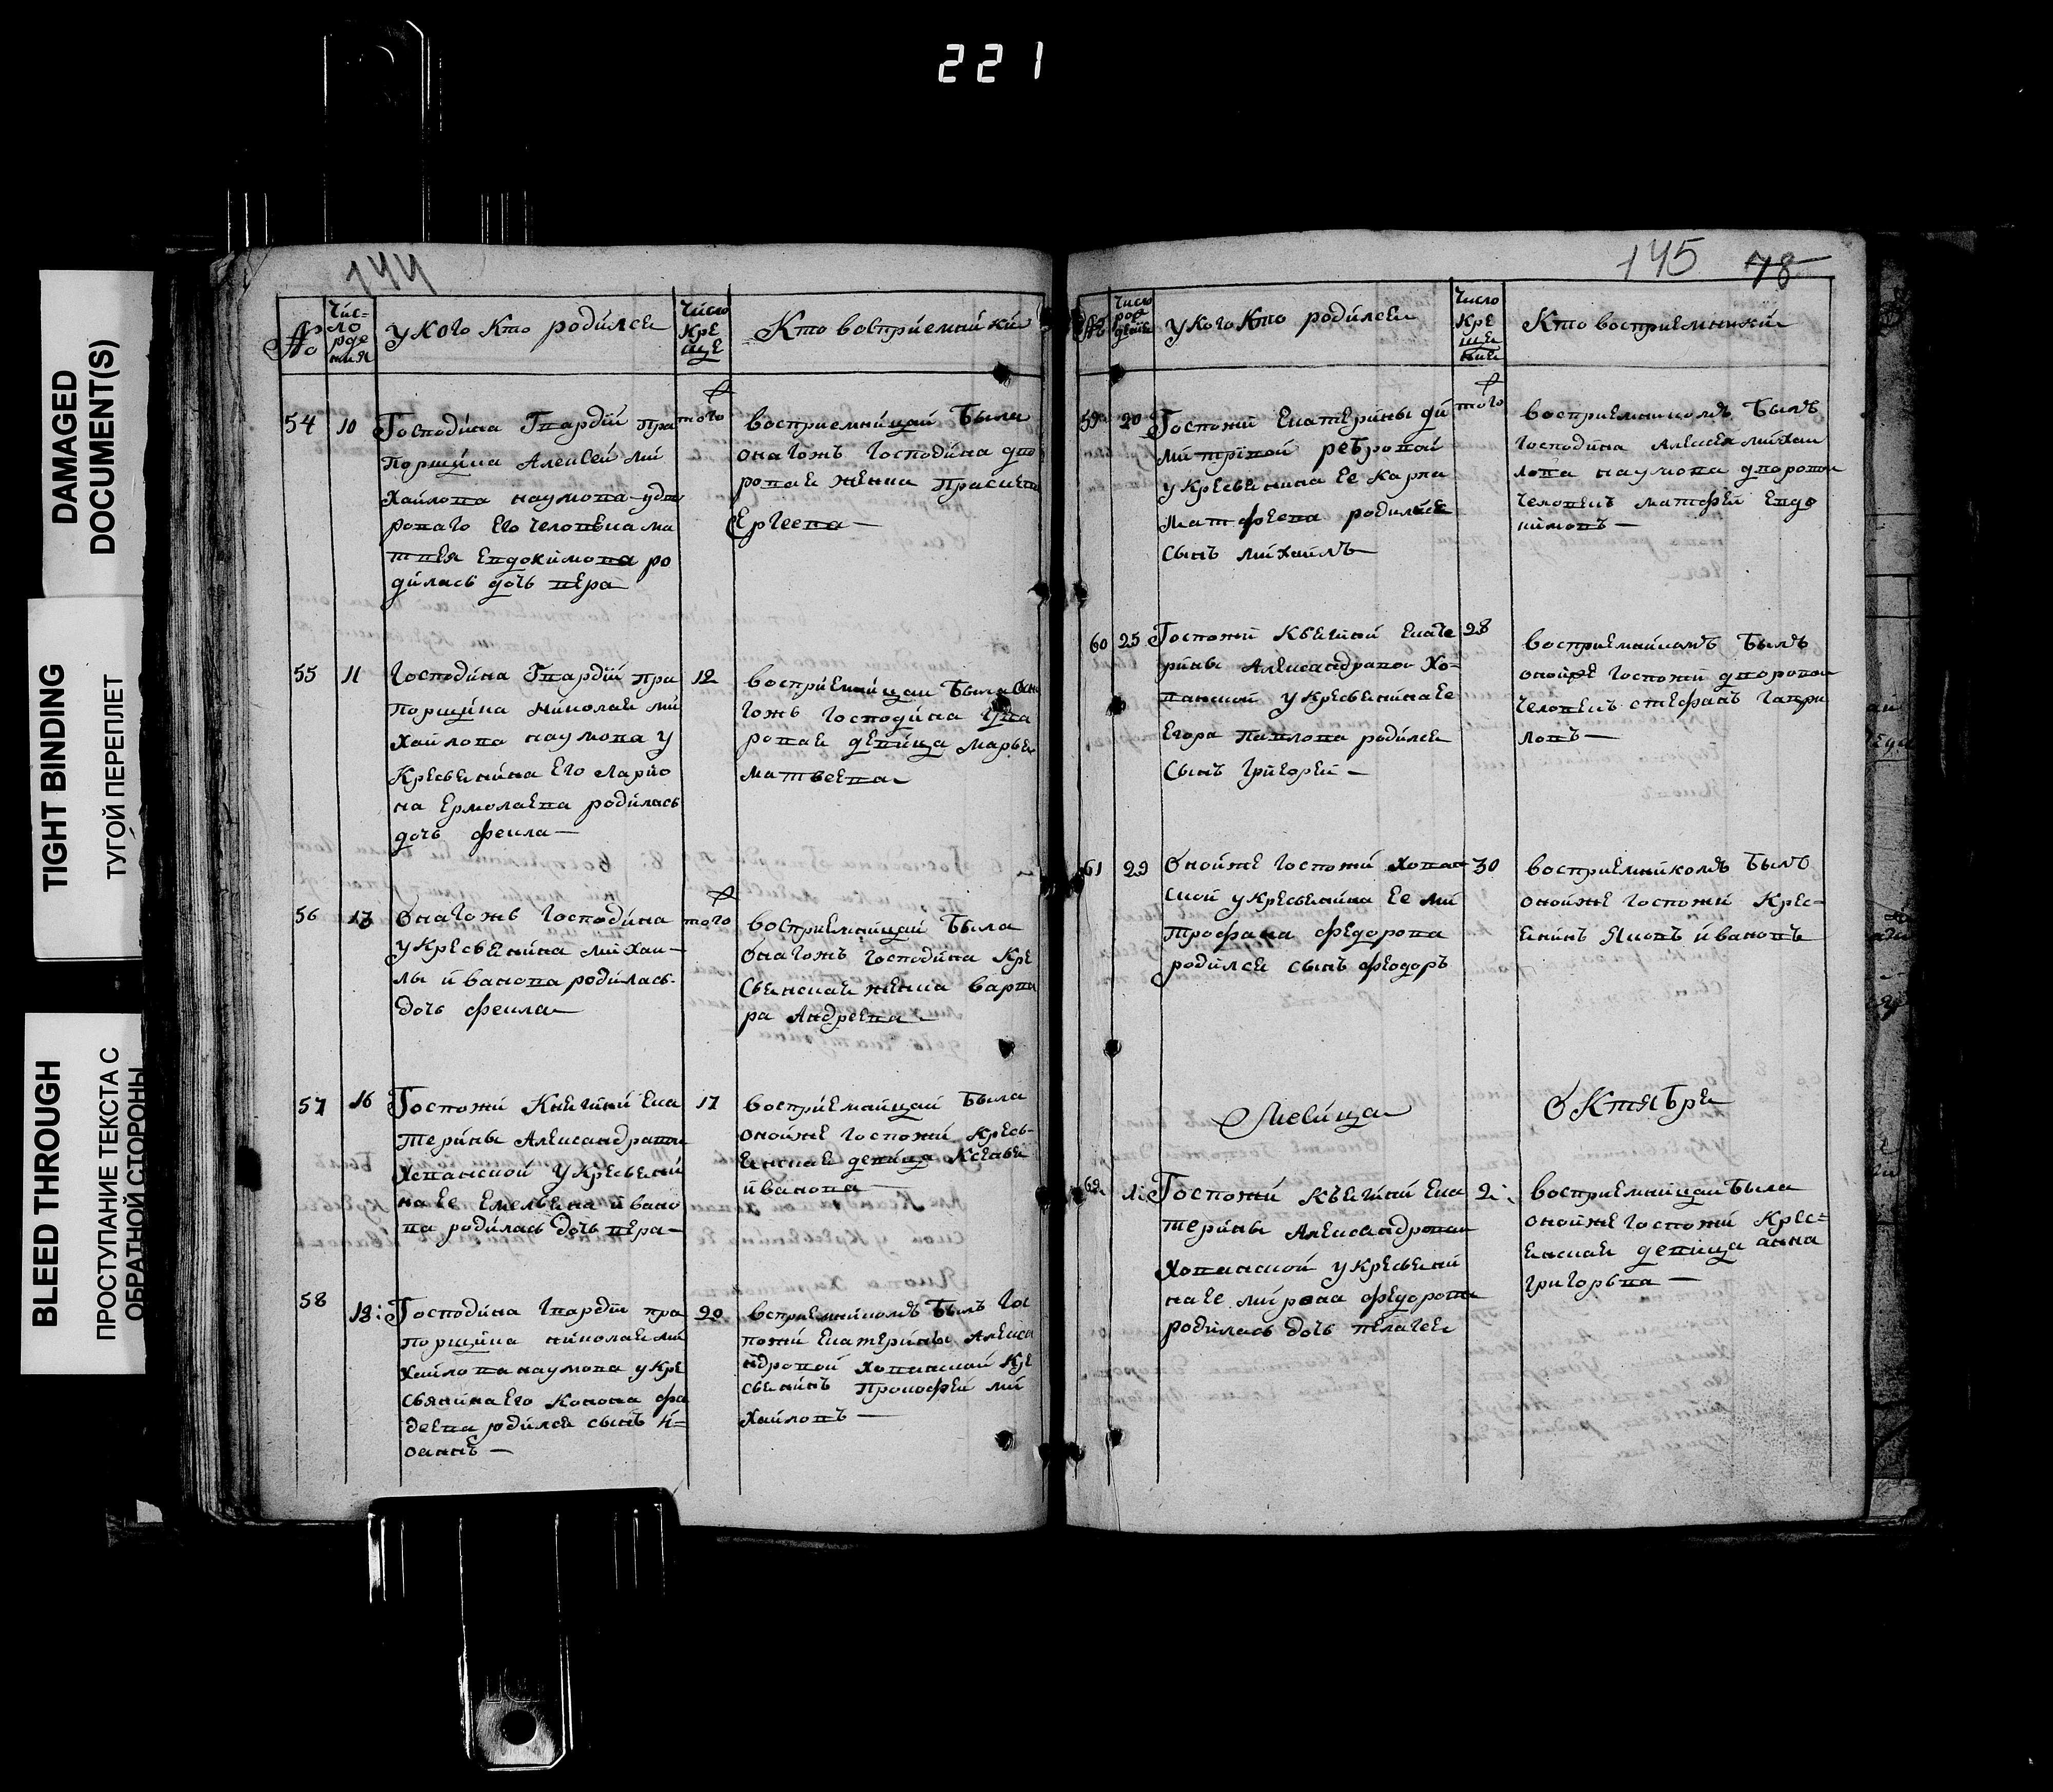 221
DAMAGED
DOCUMENT(S)
TIGHT BINDING
ТУГОЙ ПЕРЕПЛЕТ
BLEED THROUGH
ПРОСТУПАНИЕ ТЕКСТА С
ОБРАТНОЙ СТОРОНЫ
144
№
Чис=
ло
рде
ния
у кого Кто родился
Число
Кре
ще
Кто восприемники
54
10
Господина Гвардiи пра
порщика Алексея ми
хайлова наумова удво
роваго Его человека ма
твея Евдокимова ро
дилась дочь вера
того
восприемницай была
онагожъ господина дво
ровае женка Прасков
Ергеева
55
11
господина Гвардiи пра
порщика николая ми
хайлова наумова у
Кресьенина Его ларио
на Ермолаева родилась
дочь фекла
12
восприемницаи была она
гожъ господина дво
ровае девица марья
матвеева
56
13
Онагожъ господина
у Кресьенина михаи
лы иванова родилась
дочь фекла
того
восприемницай была
онагожъ господина Кре
сьенскае женка варва
ра Андреева
57
16
Госпожи Кнегини Ека
терины Александравои
Хованской у Кресьени
на Ее Емельена ивано
ва родилась дочь вера
17
восприемницай была
онойже госпожи Кресь
енскае девица Ксевье
иванова
58
18
Господина Гвардiи пра
порщика николая ми
хайлова наумова у Кре
сьянина Его Конона фа
деева родился сынъ и=
оаннъ
20
восприемникомъ былъ Гос
пожи Екатерины Алекса
ндровой хованскай Кре
сьенинъ Прокофей ми
хайловъ
145 78
№
Число
рож
дение
у кого Кто родился
Число
Кре
ще
ние
Кто восприемники
59
20
Госпожи Екатерины ди
митрiвой ребровой
у Кресьенина Ее Карпа
Матфеева родился
Сынъ михайлъ
того
восприемникомъ былъ
господина Алексея михаи
лова наумова дворовои
человекъ матфей Евдо
кимовъ
60
25
Госпожи Кнегиной Екате
рины Александравои Хо=
ванской у Кресьенина Ее
Егора павлова родился
Сынъ григорей
28
восприемникомъ былъ
онойже госпожи дворовои
человекъ стефанъ гаври
ловъ
61
29
Онойже госпожи хован
ской у Кресьенина Ее ми
трофана федорова
родился сынъ феодоръ
30
восприемникомъ былъ
онойже госпожи Крес=
енинъ Яковъ ивановъ
Месица Октября
62
1
Госпожи Кнегини Ека
терины Александровои
Хованской у Кресьени
на Ее мирона федорова
родилась дочь пелагея
2
восприемницаи была
онойже госпожи Крес=
енскае девица анна
григорьва